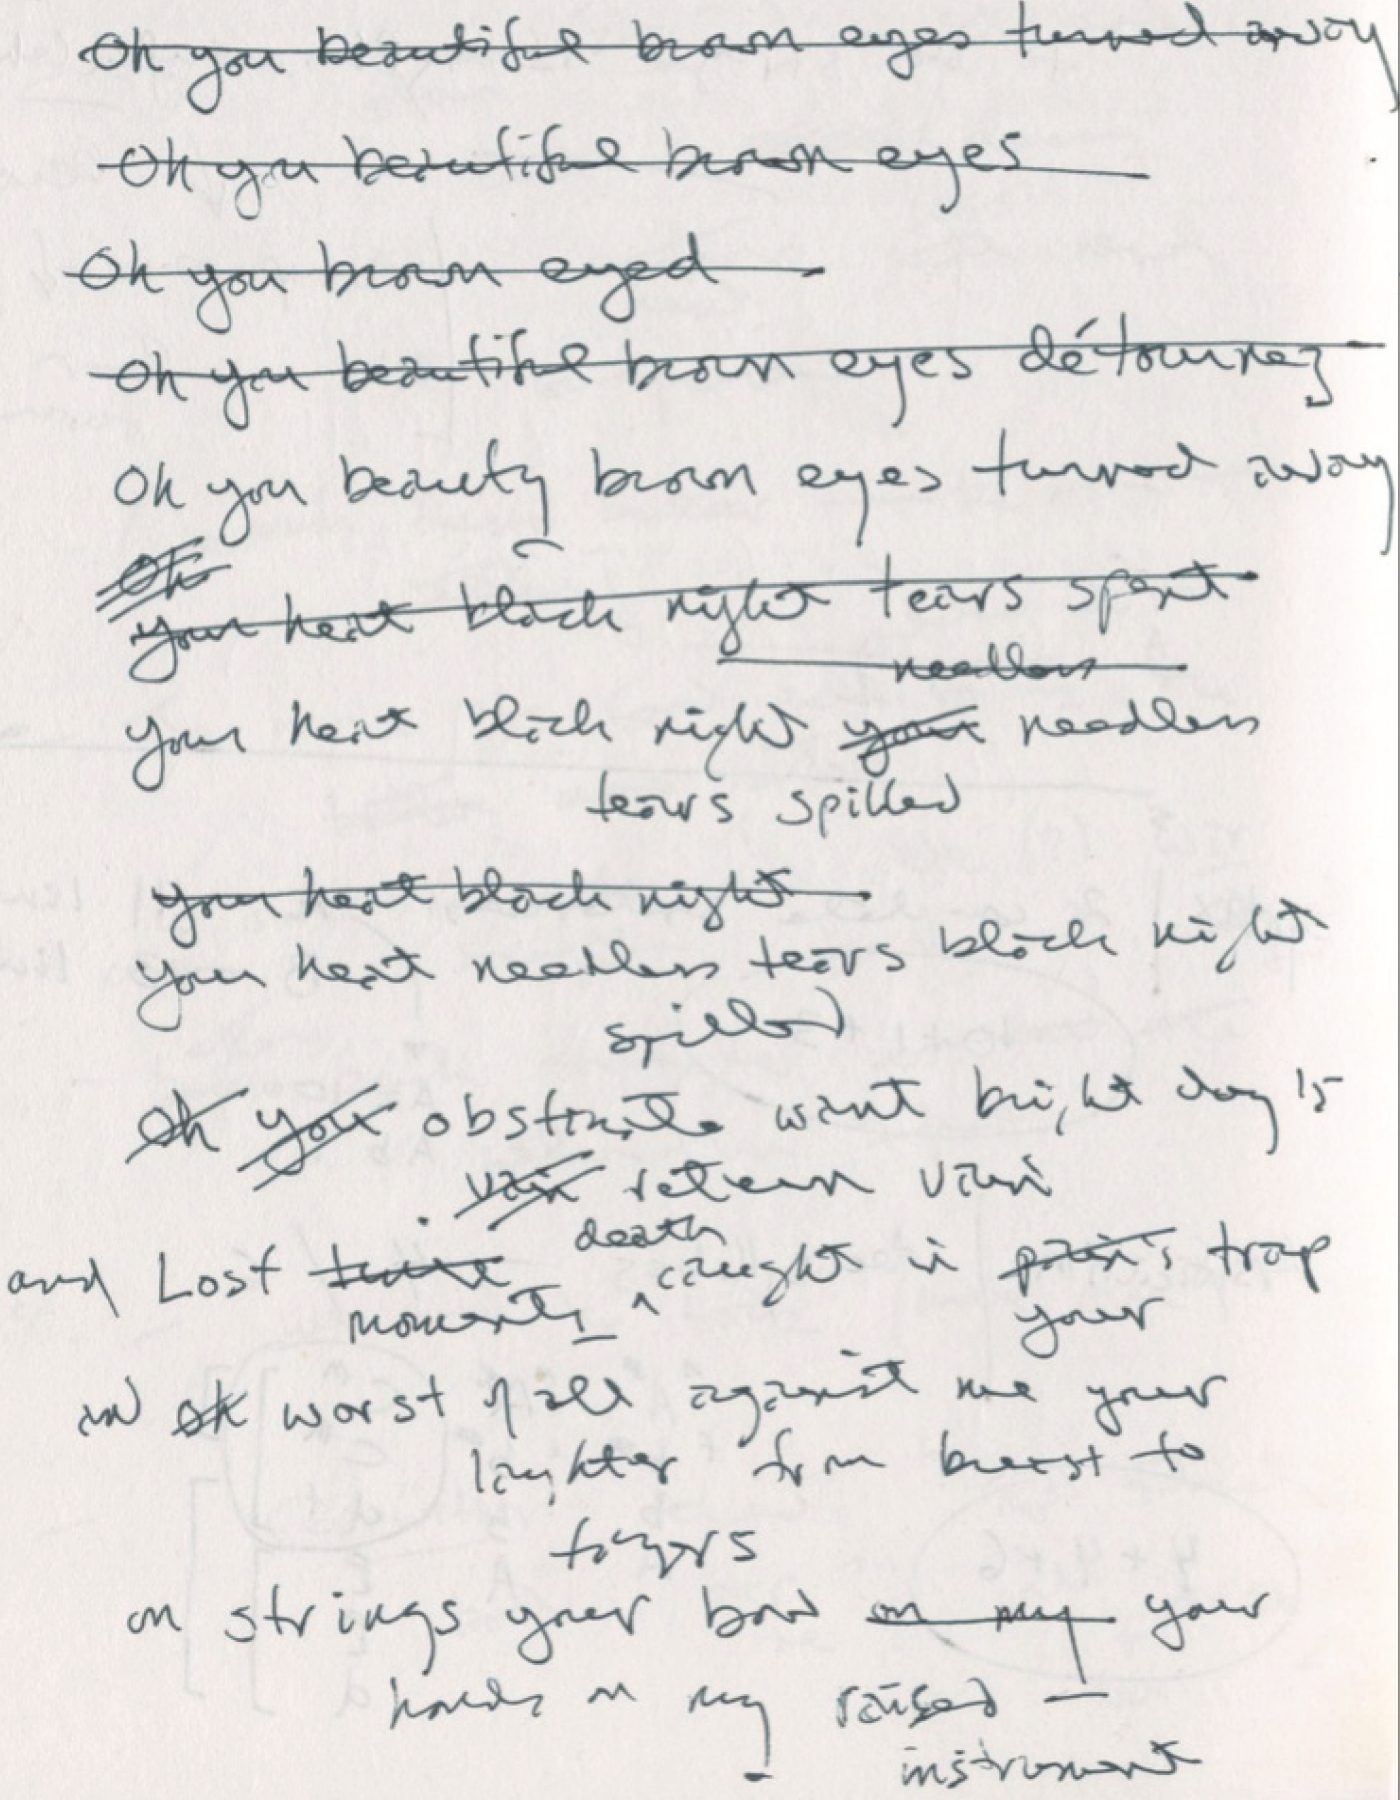 Oh you beautiful brown eyes turned away
Oh you beautiful brown eyes
Oh you brown eyed
Oh you beautiful brown eyes détournez
Oh you beauty brown eyes turned away
Oh
your heat black night tears spent
needless
your heat black night your needless
tears spilled
your heat black night
your heat needless tears black night
spilled
Oh you obstinate want bright day is
vain return vain
death
and Lost time caught in pain's trap
moments ^ your
and oh worst of all against me your
laughter from breast to
fingers
on strings your bow on my your
hands on my raised —
instrument